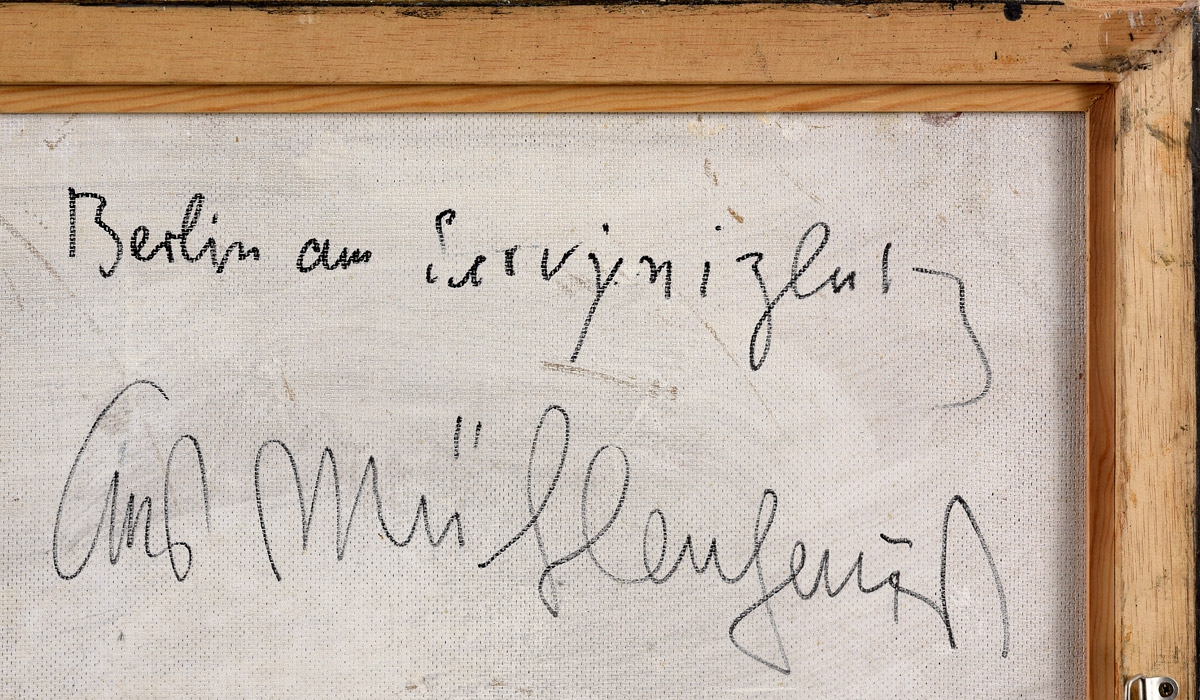 Berlin am
Curt Mühlenhaupt